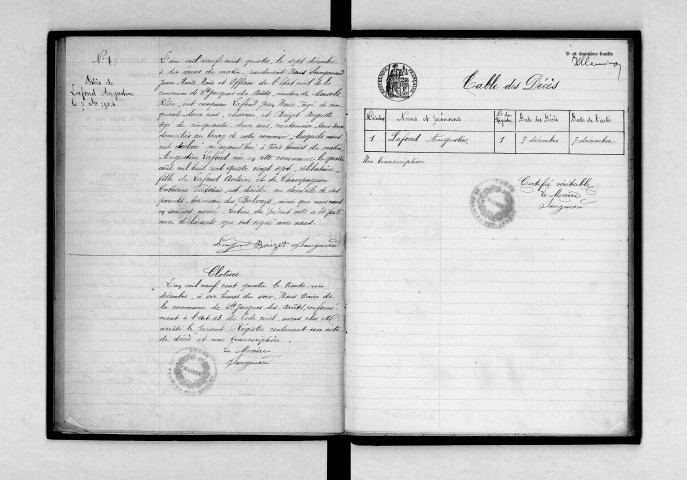 N° 1
Décès de
Lafond Augustine
le 7 Xbre 1904
L'an mil neuf cent quatre, le sept décembre
à dix heures du matin, pardevant Nous Sangouard
Jean Marie Maire et Officier de l'Etat civil de la
commune de St Jacques des Arrêts, canton de Monsols
Rhône, est comparu Lafond Jean Marie, âgé de cin-
quante deux ans, et Auguste
âgé de cinquante deux ans, cantonnier, tous deux
domiciliés au bourg de cette commune, lesquels nous
ont déclaré qu'aujourd'hui à trois heures du matin,
Augustine Lafond née en cette commune le quatre
mil huit cent quatre vingt sept, célibataire,
fille de Lafond Antoine et de Champagnon
Catherine est décédée au domicile de ses
parents, hameau des ainsi que nous nous
en sommes assuré. Lecture du présent acte a été faite
aux déclarants qui ont signé avec nous.
Lafond Sangouard
Cloture
L'an mil neuf cent quatre le trente un
décembre, à six heures du soir, Nous Maire de
la commune de St Jacques des Arrêts, conformé-
ment à l'art 43 du Code civil, avons clos et
arrêté le présent Registre contenant un acte
de décès et une transcription.
Le Maire
Sangouard
MAIRIE
2e et dernière feuille
Table des Décès
Noms et prénoms
N° du Registre
Date des Décès
Date de l'acte
1 Lafond Augustine 1 7 décembre 7 décembre
Une transcription
Certifié véritable
Le Maire
Sangouard